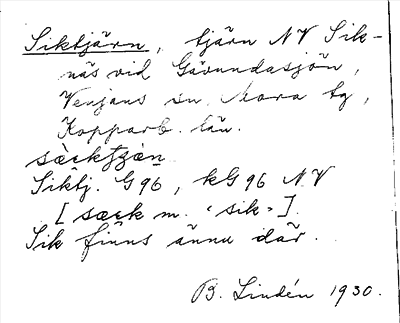 Siktjärn, tjärn NV Sik-
näs vid Gärundasjön,
Venjans sn. Mora tg,
Kopparb. län.
Siktj. G96, kG96 NV
[sæck m. ‹sik›].
Sik finns ännu där.
B. Lindén 1930.